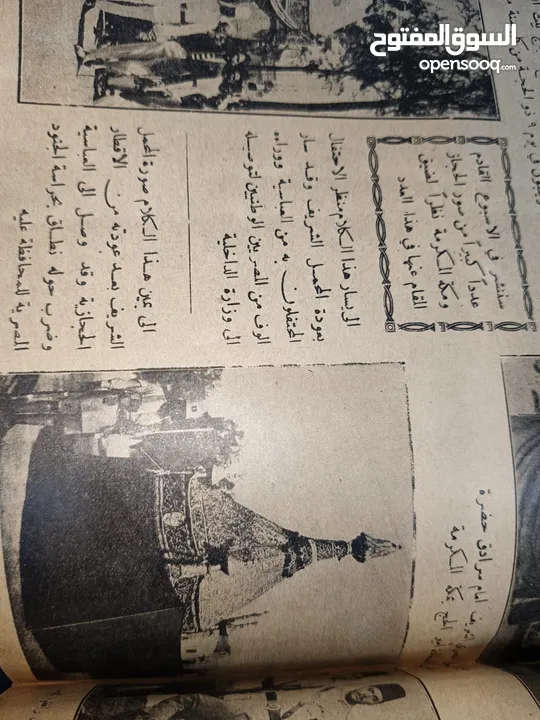 السوق المفتوح
opensooq.com
يوم ٩ ذو الحجة
سننشر في الاسبوع القادم
عدداً كبيراً من صور الحجاز
ومكة المكرمة نظراً لضيق
المقام عنها في هذا العدد
الى يسار هذا الكلام منظر الاحتفال
بعودة المحمل الشريف وقد سار
المحتفلون به من العباسية ووراءه
الوف من المصريين الوطنيين لتوصيله
الى وزارة الداخلية
الى يمين هذا الكلام صورة المحمل
الشريف بعد عودته من الاقطار
الحجازية وقد وصل الى العباسية
وضرب حوله نطاق بحراسة الجنود
المصرية للمحافظة عليه
امام سرادق حضرة
الحج بمكة المكرمة